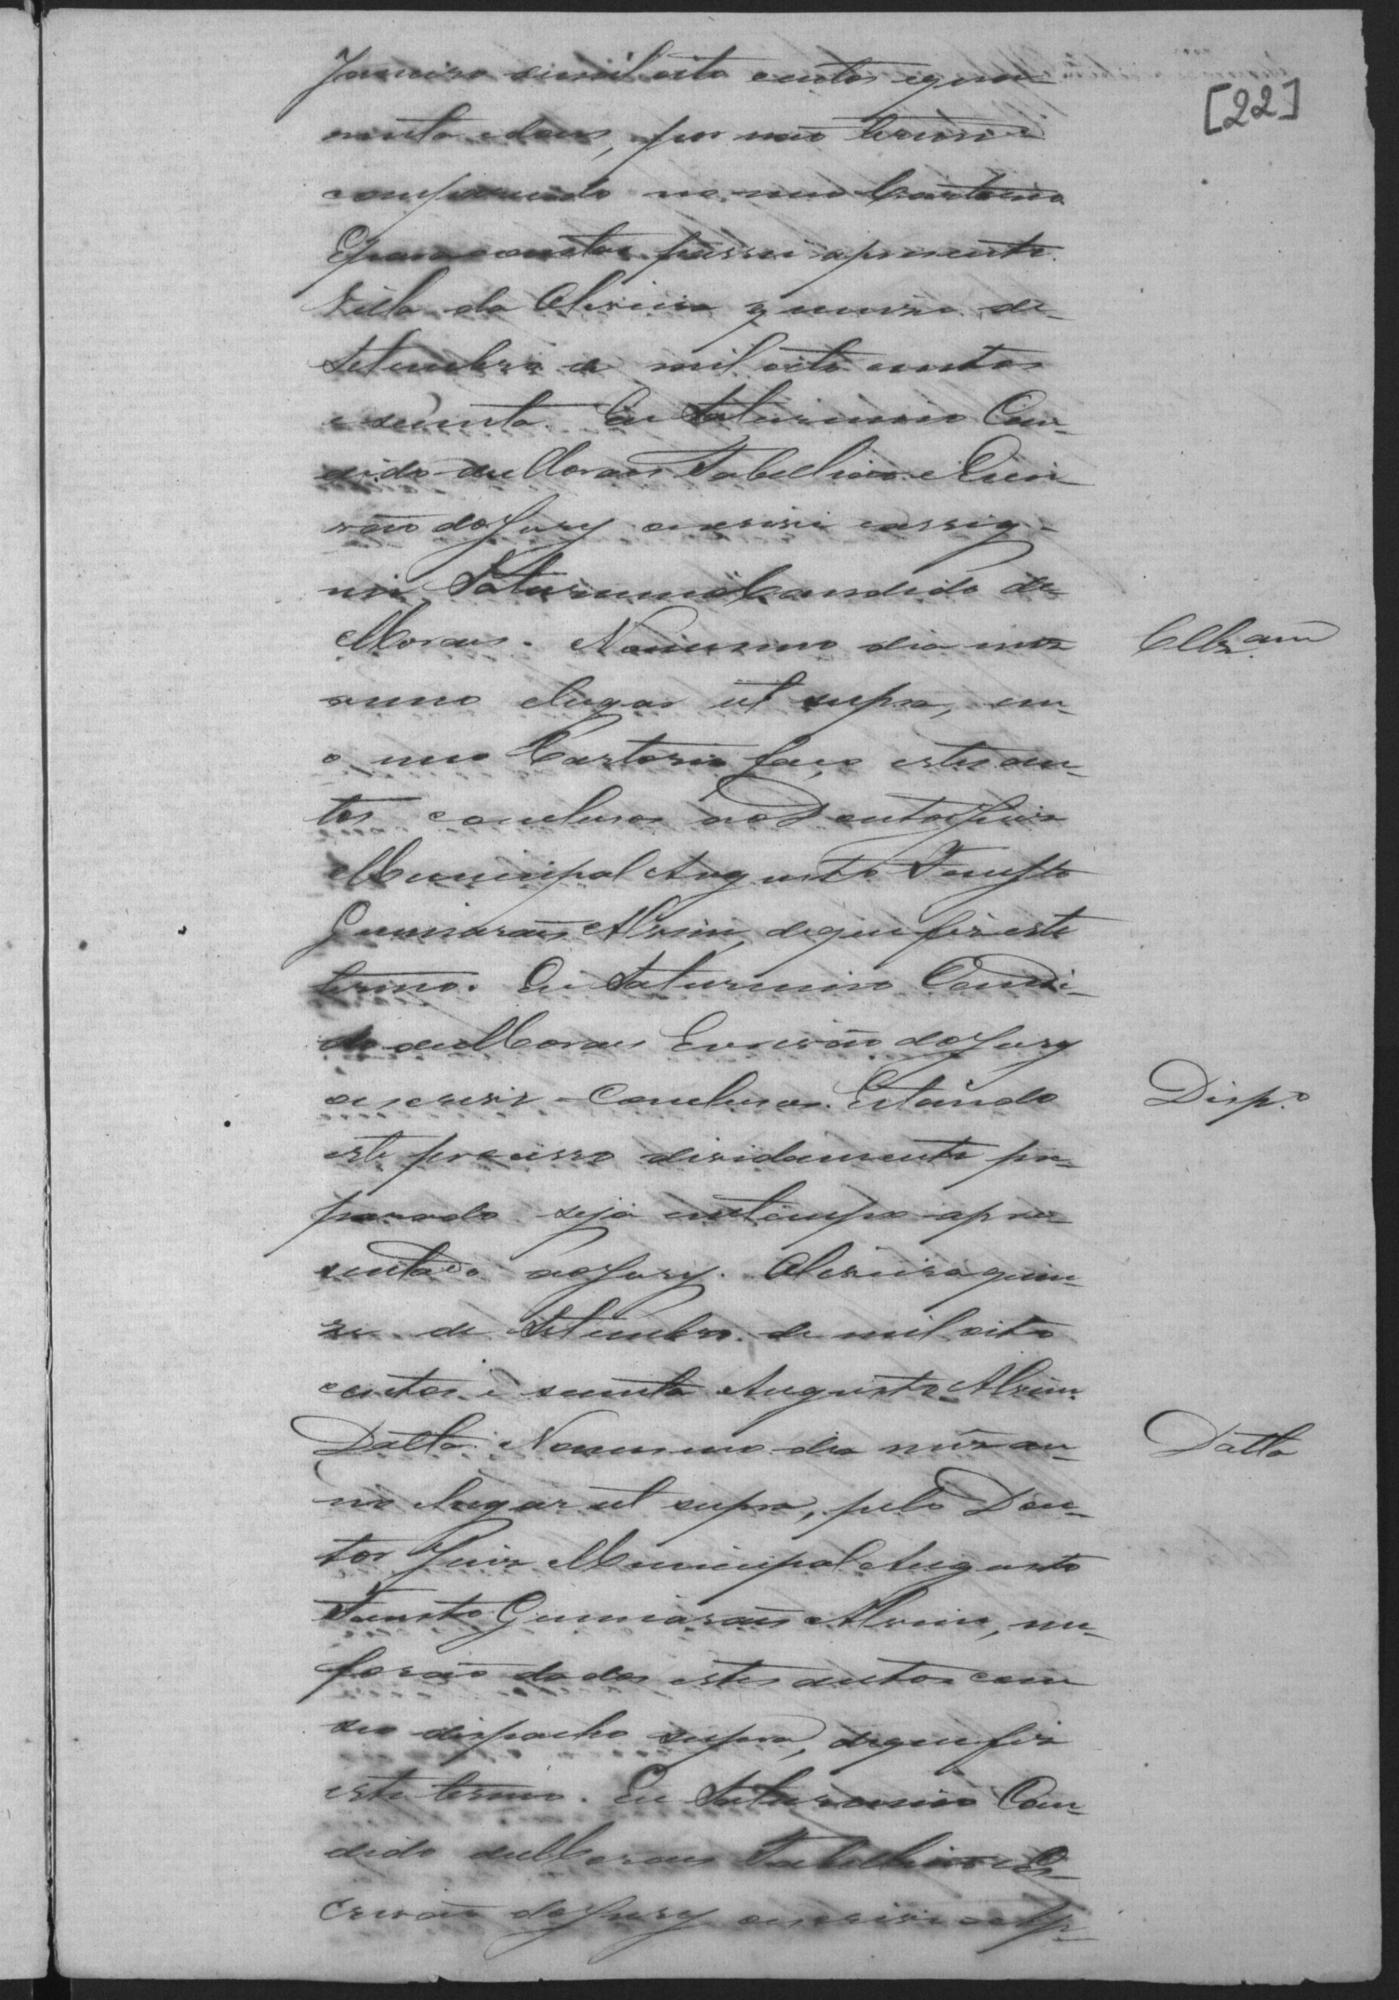 [22]
Janeiro de mil oito centos e quar
enta e dous, por não terem
comparecido no meu Cartorio
E para constar passei a presente.
Villa da Oliveira quinze de
Setembro de mil oito centos
e secenta. Eu Saturnino Can-
dido de Moraes Tabellião e Escri
vão do Jury escrivi e assig-
nei Saturnino Candido de
Moraes. No mesmo dia mez
anno e lugar ut supra, em
o meu Cartorio faço estes au-
tos conclusos ao Doutor Juiz
Municipal Augusto Fausto
Guimarães Alvim, de que fiz este
termo. Eu Saturnino Candi-
do de Moraes Escrivão do Jury
escrivi - Conclusos. Estando
Disp.o
este processo devidamente pre-
parado seja em tempo apre-
sentado ao Jury. Oliveira quin-
ze de Setembro de mil oito
centos e secenta Augusto Alvim.
Datta. No mesmo dia mez an-
Datta
no e lugar ut supra, pelo Dou-
tor Juiz Municipal Augusto
Fausto Guimarães Alvim, me
forão dados estes autos com
seo dispacho supra, de que fiz
este termo. Eu Saturnino Can-
dido de Moraes Tabellião e Es-
crivão do Jury escrivi